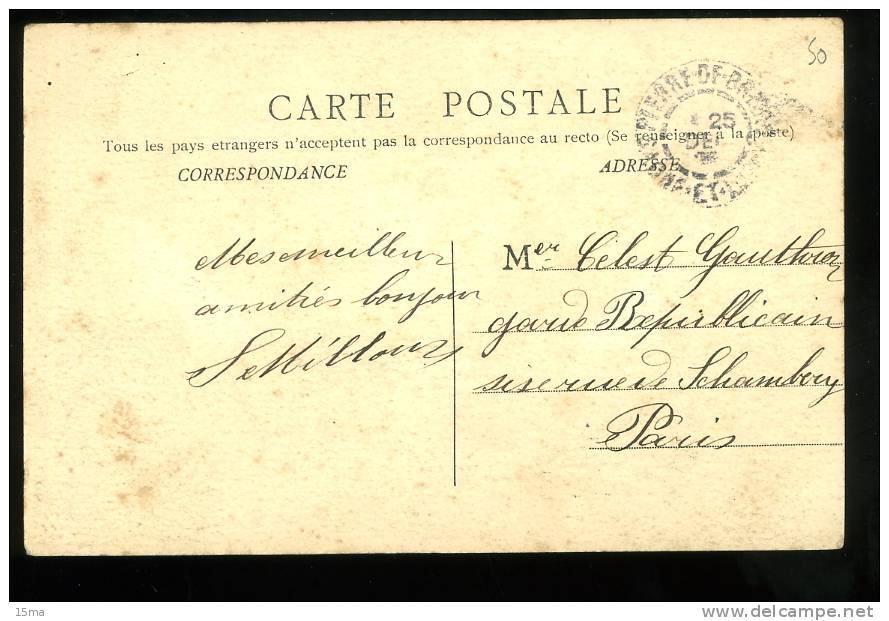 50
CARTE POSTALE
Tous les pays etrangers n'acceptent pas la correspondance au recto (Se renseigner à la poste)
CORRESPONDANCE
ADRESSE
PIERRE-DE-BR
25
DEC
ET
Mes meilleur
amitiés bonjour
Mer Célest
garde Republicain
Schambery
Paris
15ma
www.delcampe.net